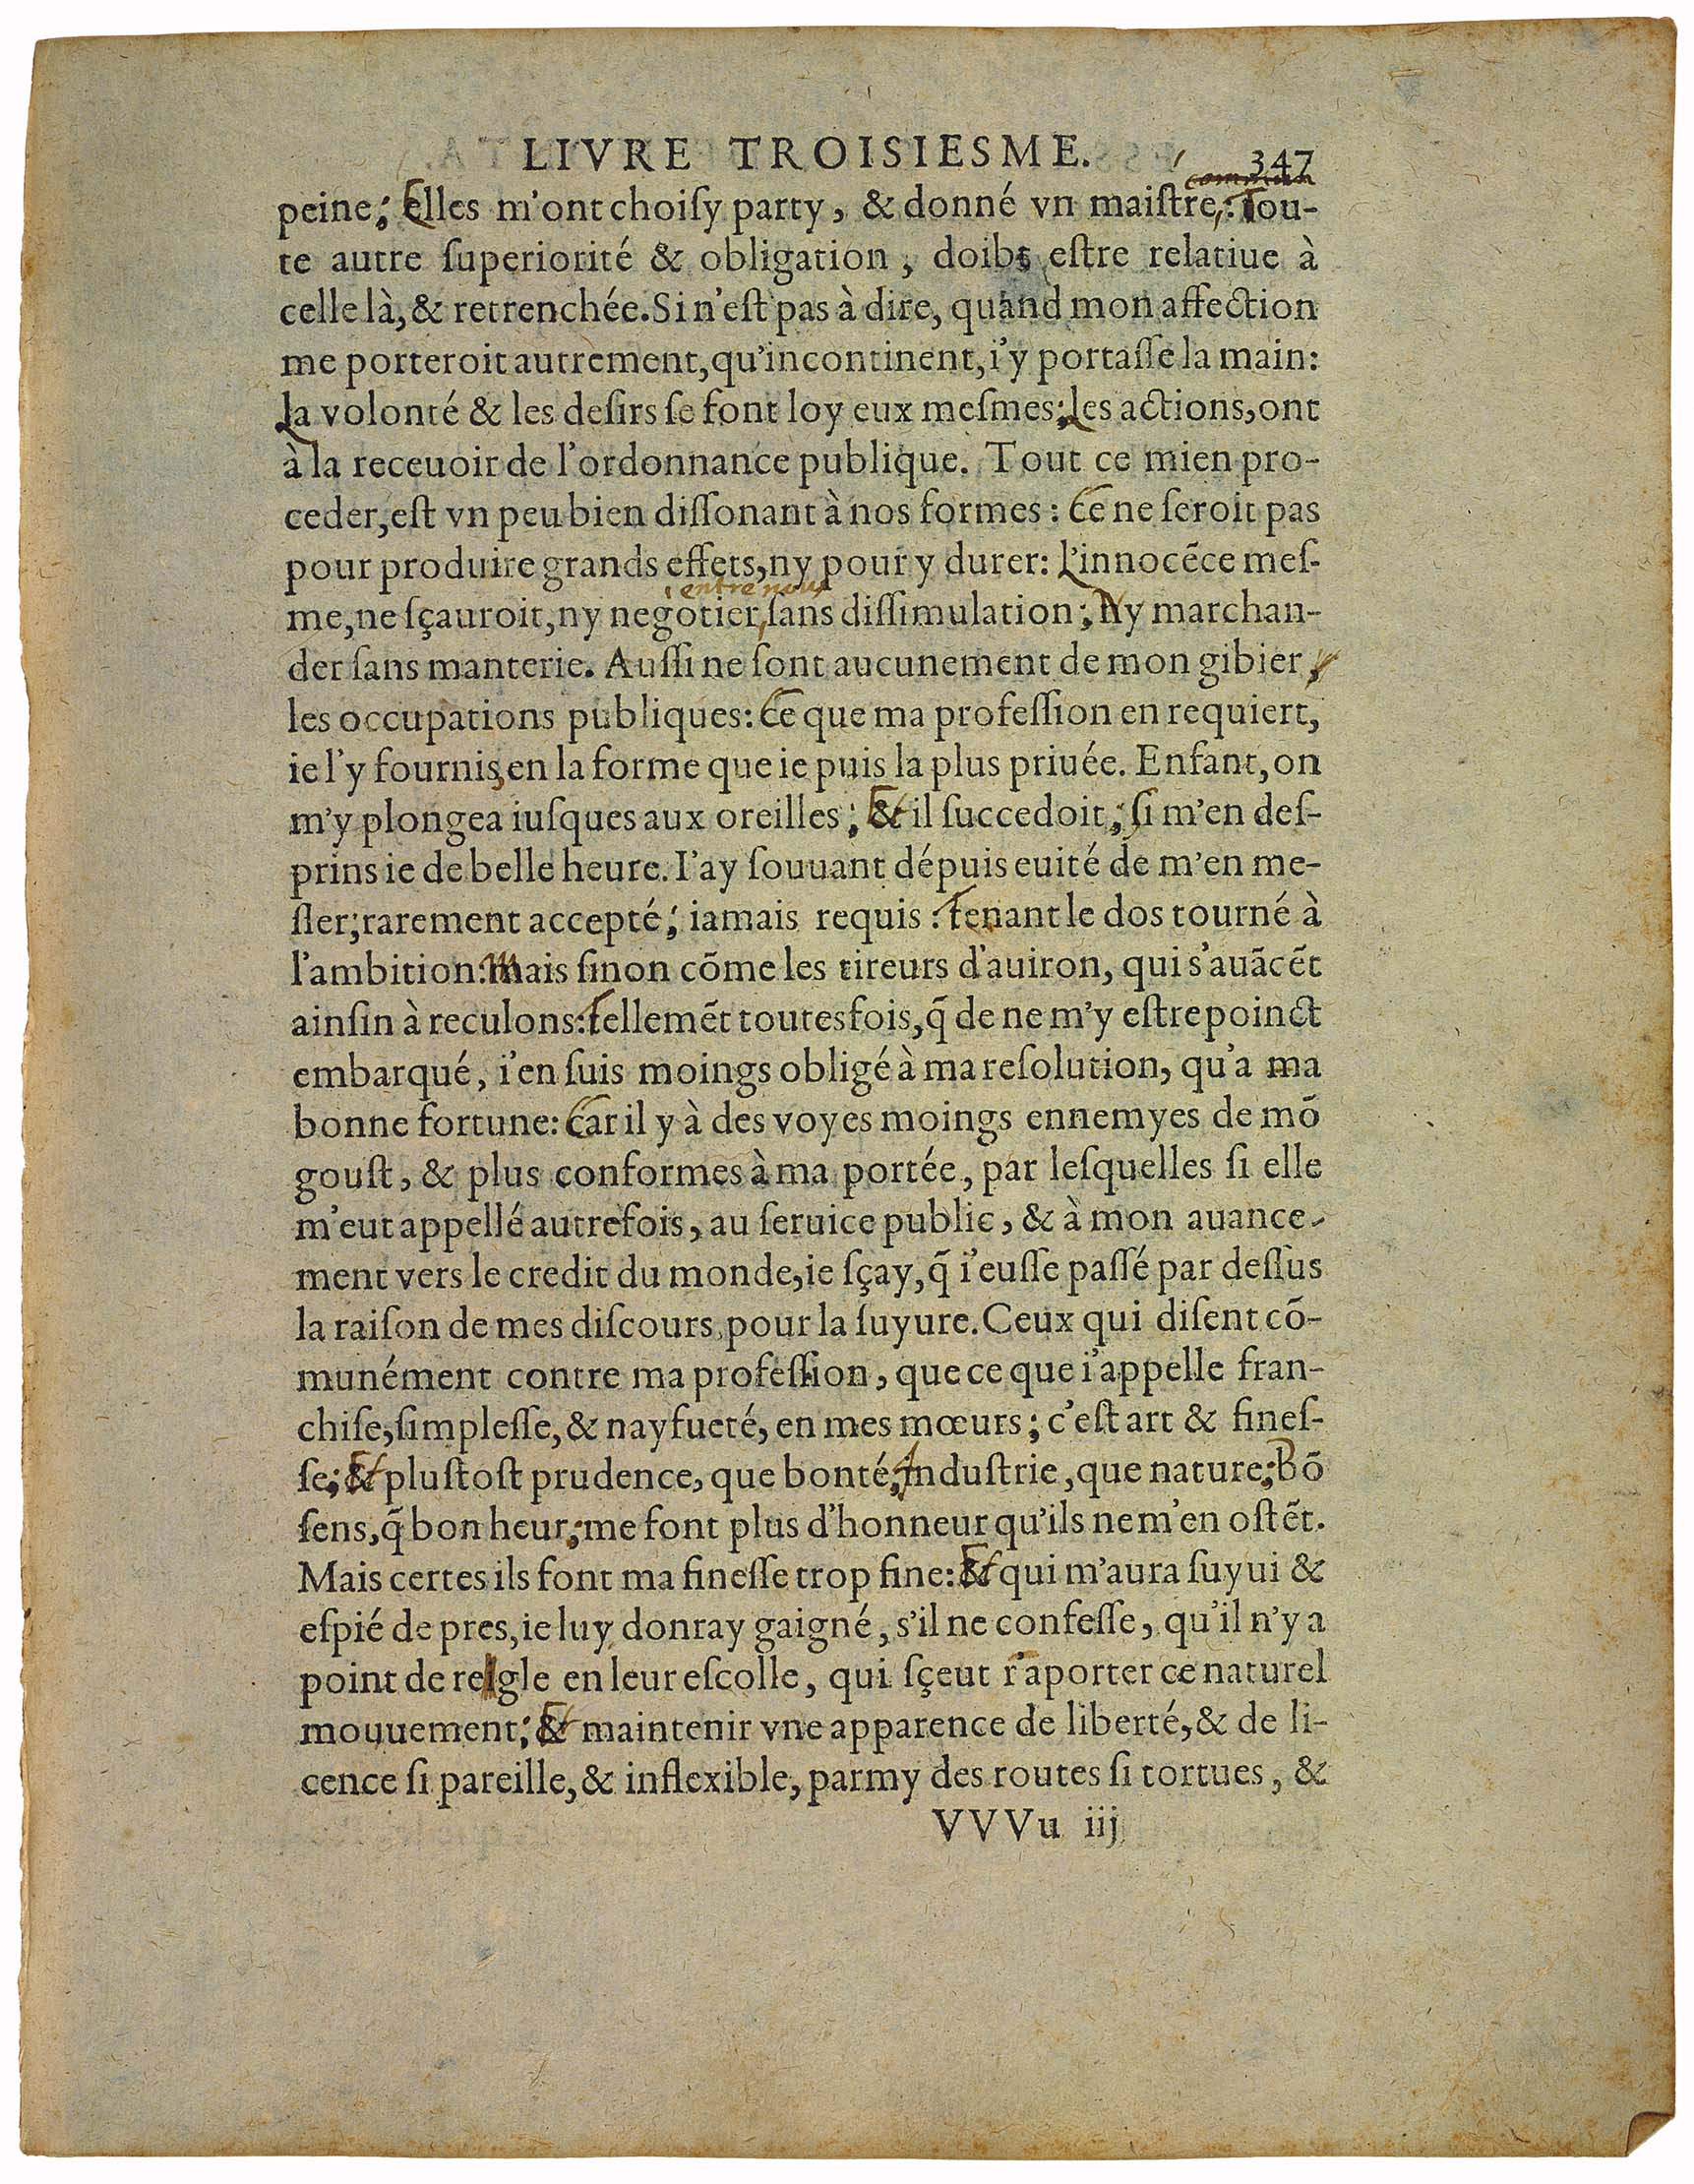 LIVRE TROISIESME. 347
peine; Elles m'ont choiſy party, & donné vn maiſtre, : Tou-
te autre ſuperiorité & obligation, doibt eſtre relatiue à
celle là, & retrenchée. Si n'eſt pas à dire, quand mon affection
me porteroit autrement, qu'incontinent, i'y portaſſe la main:
La volonté & les deſirs ſe font loy eux meſmes; Les actions, ont
à la receuoir de l'ordonnance publique. Tout ce mien pro-
ceder, eſt vn peu bien diſſonant à nos formes : Ce ne ſeroit pas
pour produire grands effets, ny pour y durer: L'innocẽce meſ-
entre nous
me, ne ſçauroit, ny negotier, ſans diſſimulation; Ny marchan-
der ſans manterie. Auſſi ne ſont aucunement de mon gibier,
les occupations publiques: Ce que ma profeſſion en requiert,
ie l'y fournis, en la forme que ie puis la plus priuée. Enfant, on
m'y plongea iuſques aux oreilles; Et il ſuccedoit; ſi m'en deſ-
prins ie de belle heure. I'ay ſouuant dépuis euité de m'en me-
ſler; rarement accepté; iamais requis : Tenant le dos tourné à
l'ambition: Mais ſinon cõme les tireurs d'auiron, qui s'auãcẽt
ainſin à reculons: Tellemẽt toutesfois, q̃ de ne m'y eſtre poinct
embarqué, i'en ſuis moings obligé à ma reſolution, qu'a ma
bonne fortune: Car il y à des voyes moings ennemyes de mõ
gouſt, & plus conformes à ma portée, par leſquelles ſi elle
m'eut appellé autrefois, au ſeruice public, & à mon auance-
ment vers le credit du monde, ie ſçay, q̃ i'euſſe paſſé par deſſus
la raiſon de mes diſcours, pour la ſuyure. Ceux qui diſent cõ-
munément contre ma profeſſion, que ce que i'appelle fran-
chiſe, ſimpleſſe, & nayfueté, en mes mœurs; c'eſt art & fineſ-
ſe; Et pluſtoſt prudence, que bonté; Induſtrie, que nature; Bõ
ſens, q̃ bon heur; me font plus d'honneur qu'ils ne m'en oſtẽt.
Mais certes ils font ma fineſſe trop fine: Et qui m'aura ſuyui &
eſpié de pres, ie luy donray gaigné, s'il ne confeſſe, qu'il n'y a
point de reigle en leur eſcolle, qui ſçeut r'aporter ce naturel
mouuement; Et maintenir vne apparence de liberté, & de li-
cence ſi pareille, & inflexible, parmy des routes ſi tortues, &
VVVu iij